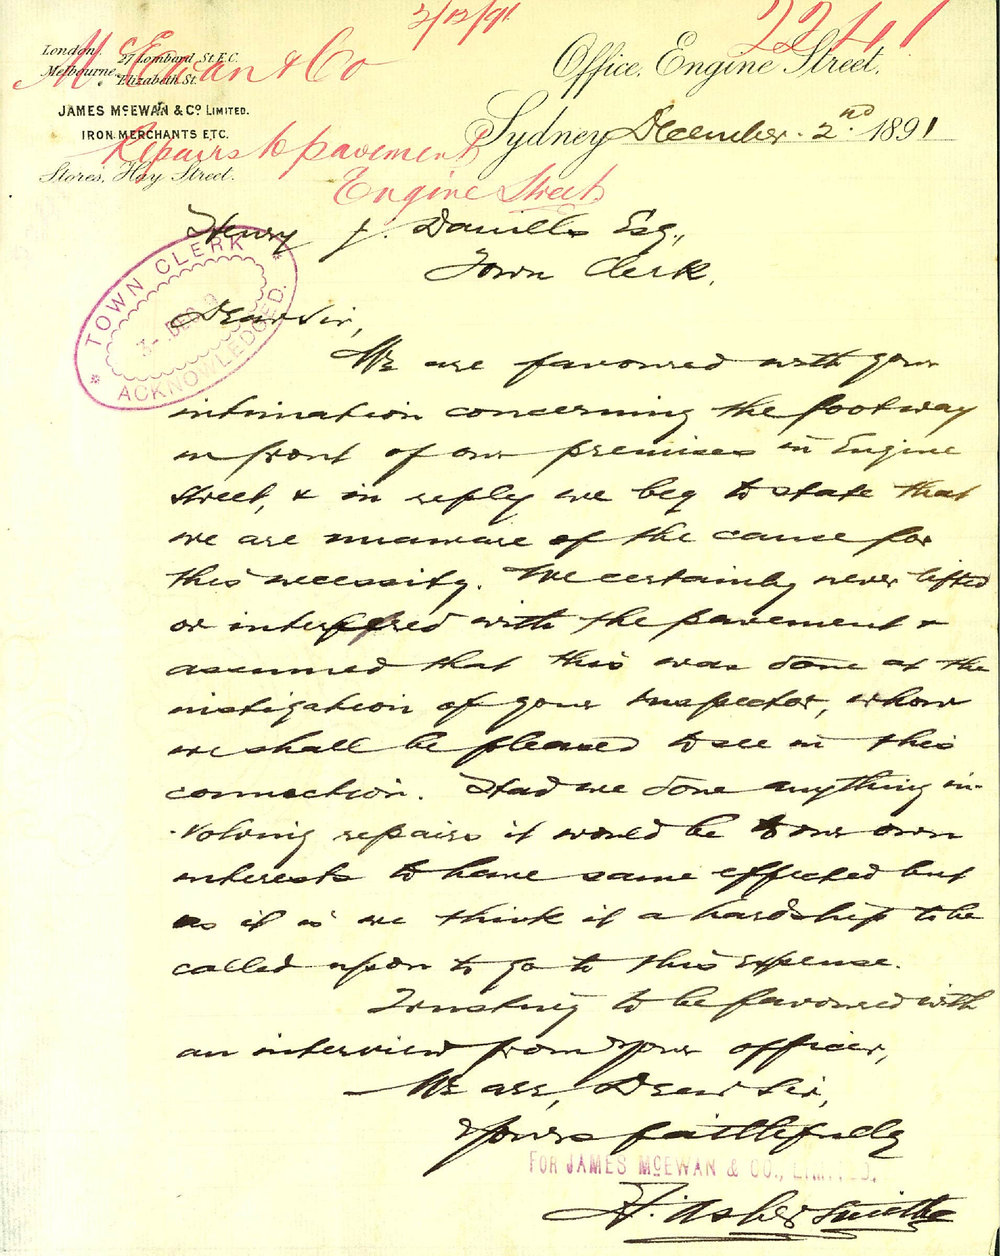 3/12/91
2241
McEwan & Co
London. 27 Lombard St. E.C.
Melbourne. Elizabeth St.
JAMES McEWAN & Co LIMITED.
IRON MERCHANTS ETC.
Stores, Hay Street.
Office, Engine Street,
Sydney December 2nd 1891
Repairs to pavement
Engine Street
Henry J. Daniells Esq.,
Town Clerk.
TOWN CLERK
3 - DEC 9
ACKNOWLEDGED.
Dear Sir,
We are favoured with your
intimation concerning the footway
in front of our premises in Engine
Street, & in reply we beg to state that
we are unaware of the cause for
this necessity. We certainly never lifted
or interfered with the pavement &
assumed that this was done at the
instigation of your Inspector, whom
we shall be pleased to see in this
connection. Had we done anything in-
-volving repairs it would be to our own
interests to have same effected but
as it is we think it a hardship to be
called upon to go to this expense.
Trusting to be favoured with
an interview from your officer,
We are, Dear Sir,
Yours faithfully
FOR JAMES McEWAN & CO., LIMITED.
H. Asher Smith